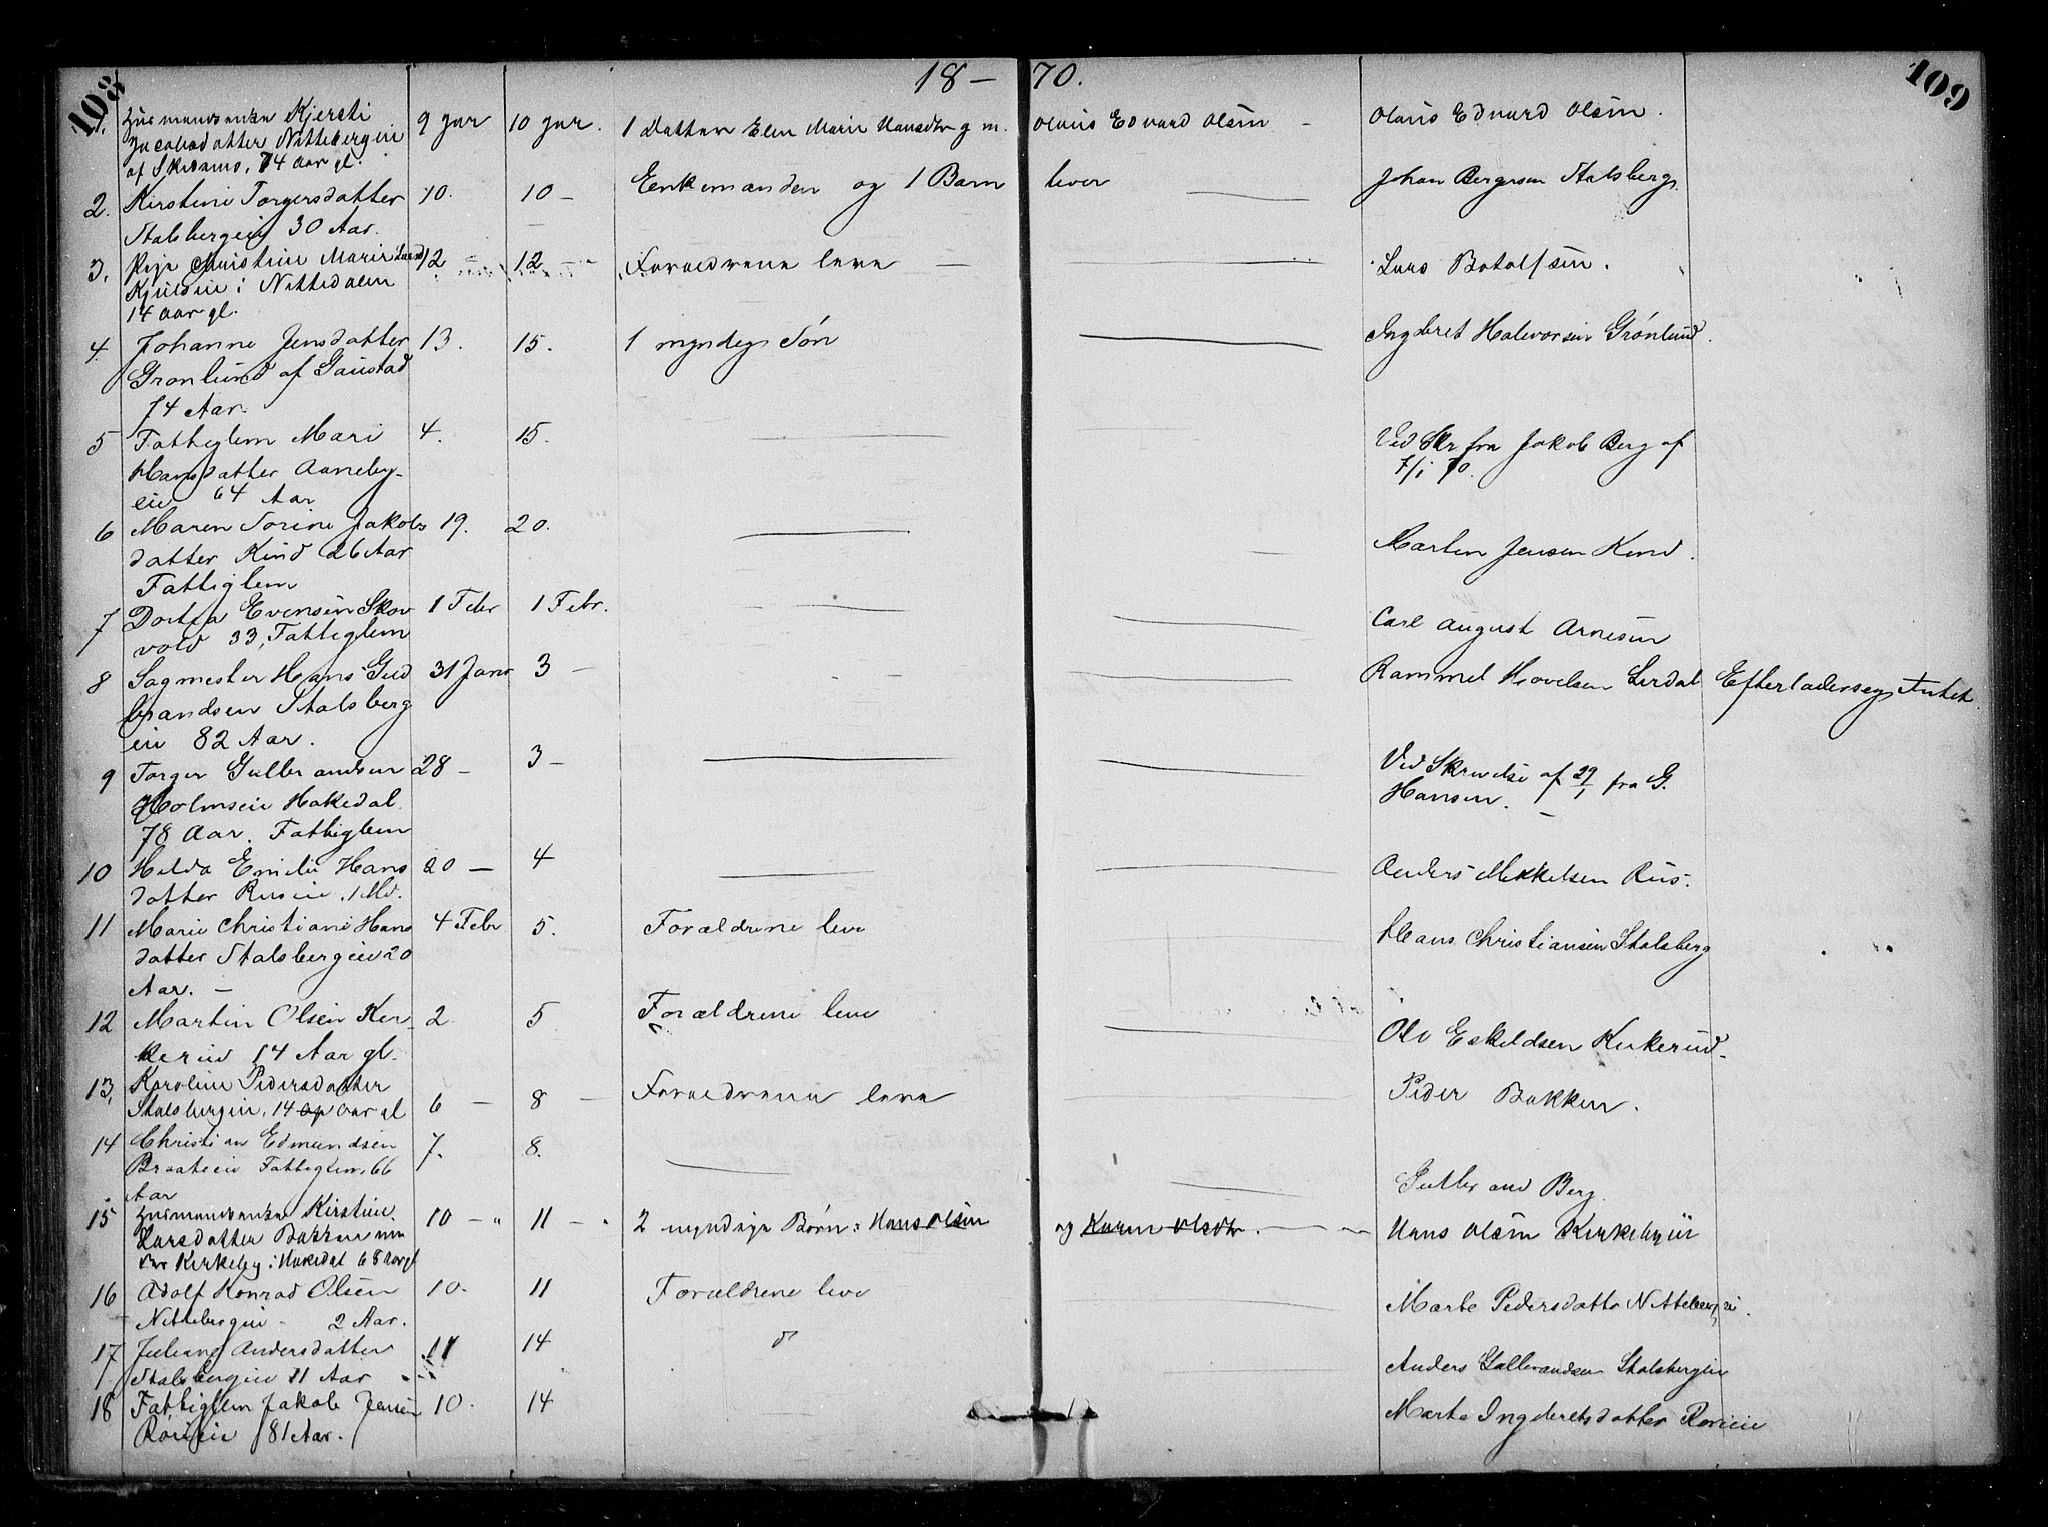 108
18 – 70.
109
1. Huusmandsenke Kjersti 9 Jan 10 Jan. 1 Datter Elen Marie Hansdtr g. m. Olaus Edvard Olsen – Olaus Edvard Olsen.
Jacobsdatter Nittebergeie
af Skedsmo, 74 Aar gl.
2. Kirstine Torgersdatter 10. 10 – Enkemanden og 1 Barn lever Johan Bergersen Stalsberg.
Stalsbergeie 30 Aar.
3. Pige Christine Marie Larsd 12 – 12 – Forældrene leve – Lars Botolfsen.
Kjulseie i Nittedalen
14 Aar gl.
4. Johanne Jensdatter 13. 15. 1 myndig Søn Ingebret Halvorsen Grønlund.
Grønlund af Gaustad
74 Aar.
5 Fattiglem Mari 4. 15. Ved Skr fra Jakob Berg af
Hansdatter Aaneby- 7/1 70.
eie 64 Aar
6 Maren Sorine Jakobs 19. 20. Martin Jensen Kind.
datter Kind 26 Aar
Fattiglem
7 Dortea Evensen Skov 1 Febr 1 Febr. Carl August Arnesen
vold 33, Fattiglem
8 Sagmester Hans Gud 31 Janr 3 – Rammel Hovelsen Lerdal Efterladenseg Antat.
brandsen Stalsberg
eie 82 Aar.
9 Torger Gulbrandsen 28 – 3 – Ved Skrivelse af 29/1 fra G.
Holmseie Hakedal. Hansen. –
78 Aar. Fattiglem
10 Hilda Emilie Hans 20 – 4 Anders Mikkelsen Rus.
datter Ruseie, 1 Md.
11 Marie Christiane Hans 4 Febr 5. Forældrene leve Hans Christiansen Stalsberg
datter Stalsbergeie 20
Aar. –
12 Martin Olsen Ker- 2. 5 Forældrene leve Ole Eskildsen Kirkerud
kerud 14 Aar gl.
13, Karoline Pedersdatter 6 – 8 – Forældrene leve Peder Bakken.
Stalsbergeie, 14 Aar gl
14 Christian Edmundsen 7. 8. Gulbrand Berg.
Braateeie Fattiglem, 66
Aar
15 Huusmandsenke Kirstine 10 – " 11 – " 2 myndige Børn: Hans Olsen og Karen Olsdtr. Hans Olsen Kirkebyeie
Larsdatter Bakken un
der Kirkeby i Hakedal 68 Aar gl
16 Adolf Konrad Olsen 10. 11 Forældrene leve Marte Pedersdatter Nittebergeie.
Nittebergeie – 2 Aar.
17 Juliane Andersdatter 11 14 d Anders Gulbrandsen Stalsbergeie
Stalsbergeie 11 Aar
18 Fattiglem Jakob Jensen 10. 14 Marte Ingebretsdatter Røreie
Røreie 81 Aar.